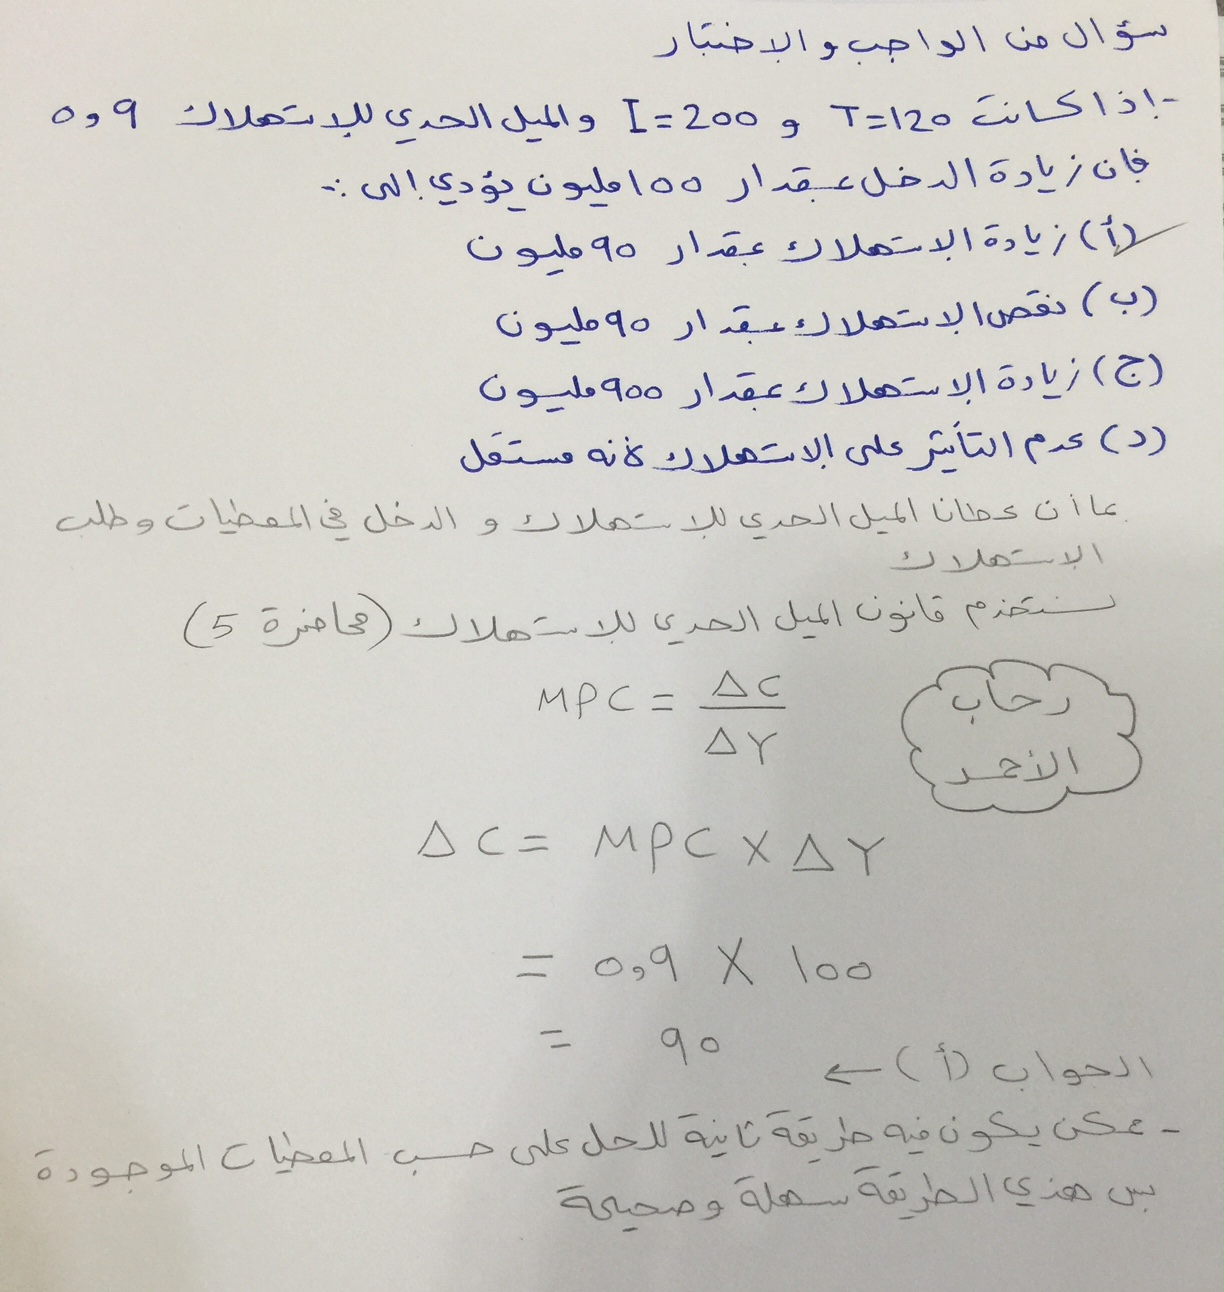 سؤال من الواجب والاختبار
- إذا كانت T=120 و I=200 والميل الحدي للاستهلاك 0,9
فان زيادة الدخل بمقدار 100 مليون يؤدي إلى :-
(أ) زيادة الاستهلاك بمقدار 90 مليون
(ب) نقص الاستهلاك بمقدار 90 مليون
(ج) زيادة الاستهلاك بمقدار 900 مليون
(د) عدم التأثير على الاستهلاك لأنه مستقل
بما أن عطانا الميل الحدي للاستهلاك و الدخل في المعطيات وطلب
الاستهلاك
نستخدم قانون الميل الحدي للاستهلاك (محاضرة 5)
MPC = ΔC / ΔY
رحاب
الأحمد
ΔC = MPC X ΔY
= 0,9 X 100
= 90
الجواب (أ) ←
- ممكن يكون فيه طريقة ثانية للحل على حسب المعطيات الموجودة
بس هذي الطريقة سهلة وصحيحة